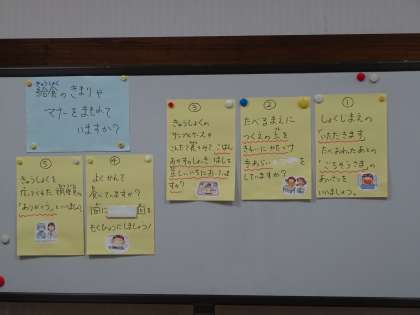 きゅうしょく
給食のきまりや
マナーをまもれて
いますか?
①
しょくじまえの
「いただきます」
たべおわったあとの
「ごちそうさま」の
あいさつを
いいましょう。
②
たべるまえに
つくえの上を
きれいにかたづけ
手あらい
していますか?
③
きゅうしょくの
サンプルケースや
こんだて
おかずのしょっき はしを
正しいいちにおいて
すか?
④
よくかんで
食べていますか?
回に 回を
もくひょうにしましょう!
⑤
きゅうしょくを
作ってくれた 調理員さん
「ありがとう」といいましょう